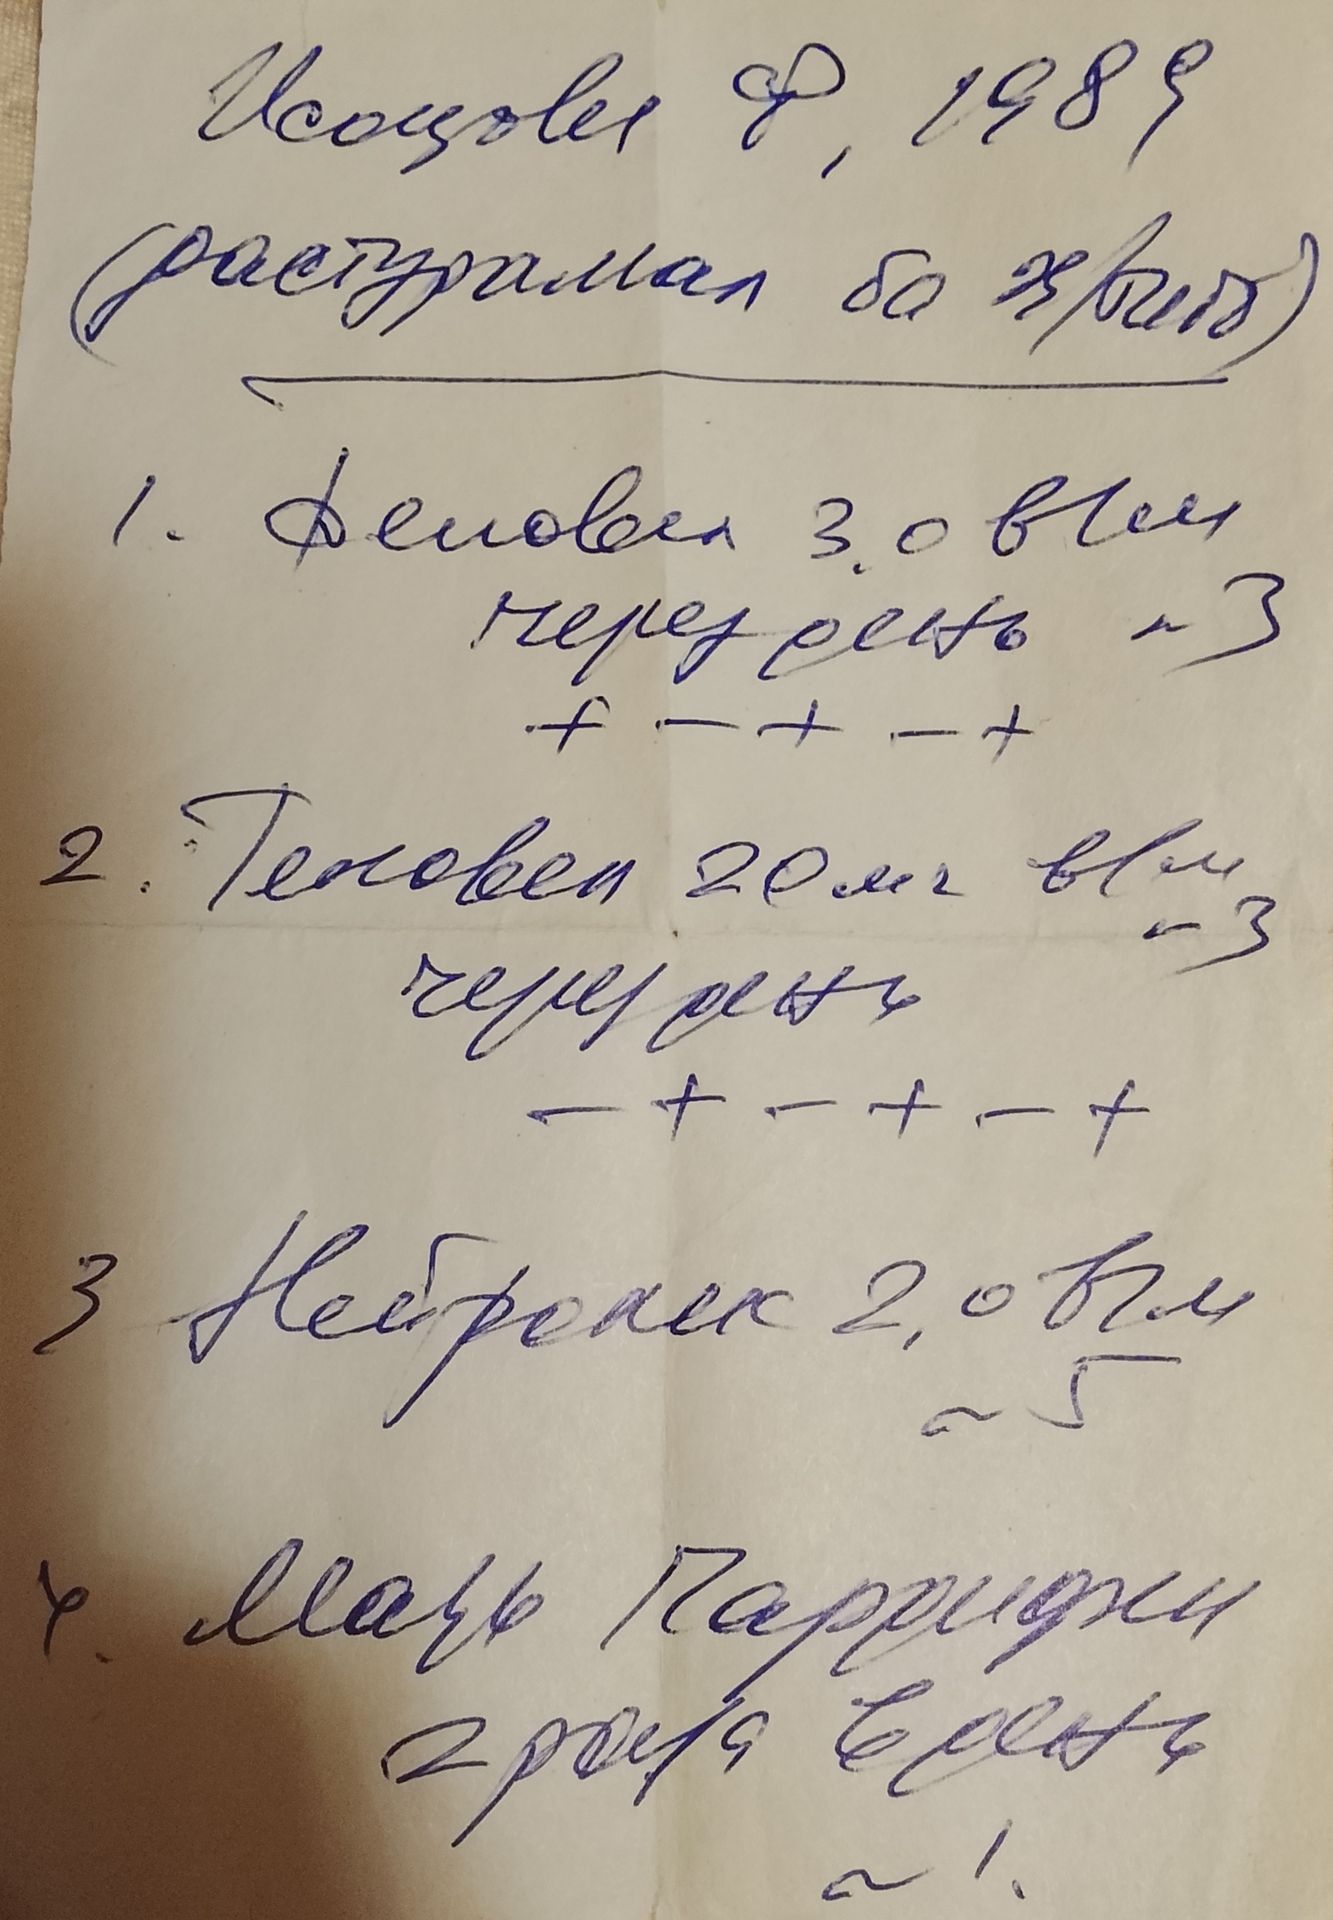 Исоцови Ф, 1989
(растурамал ба
1. Деповен 3.0 в/м
через день ~3
+ - + - +
2. Теновен 20 мг в/м
~3
через день
- + - + - +
3 Нейроник 2,0 в/м
~5
4. Мазь Парриджи
2 раза в день
~1.